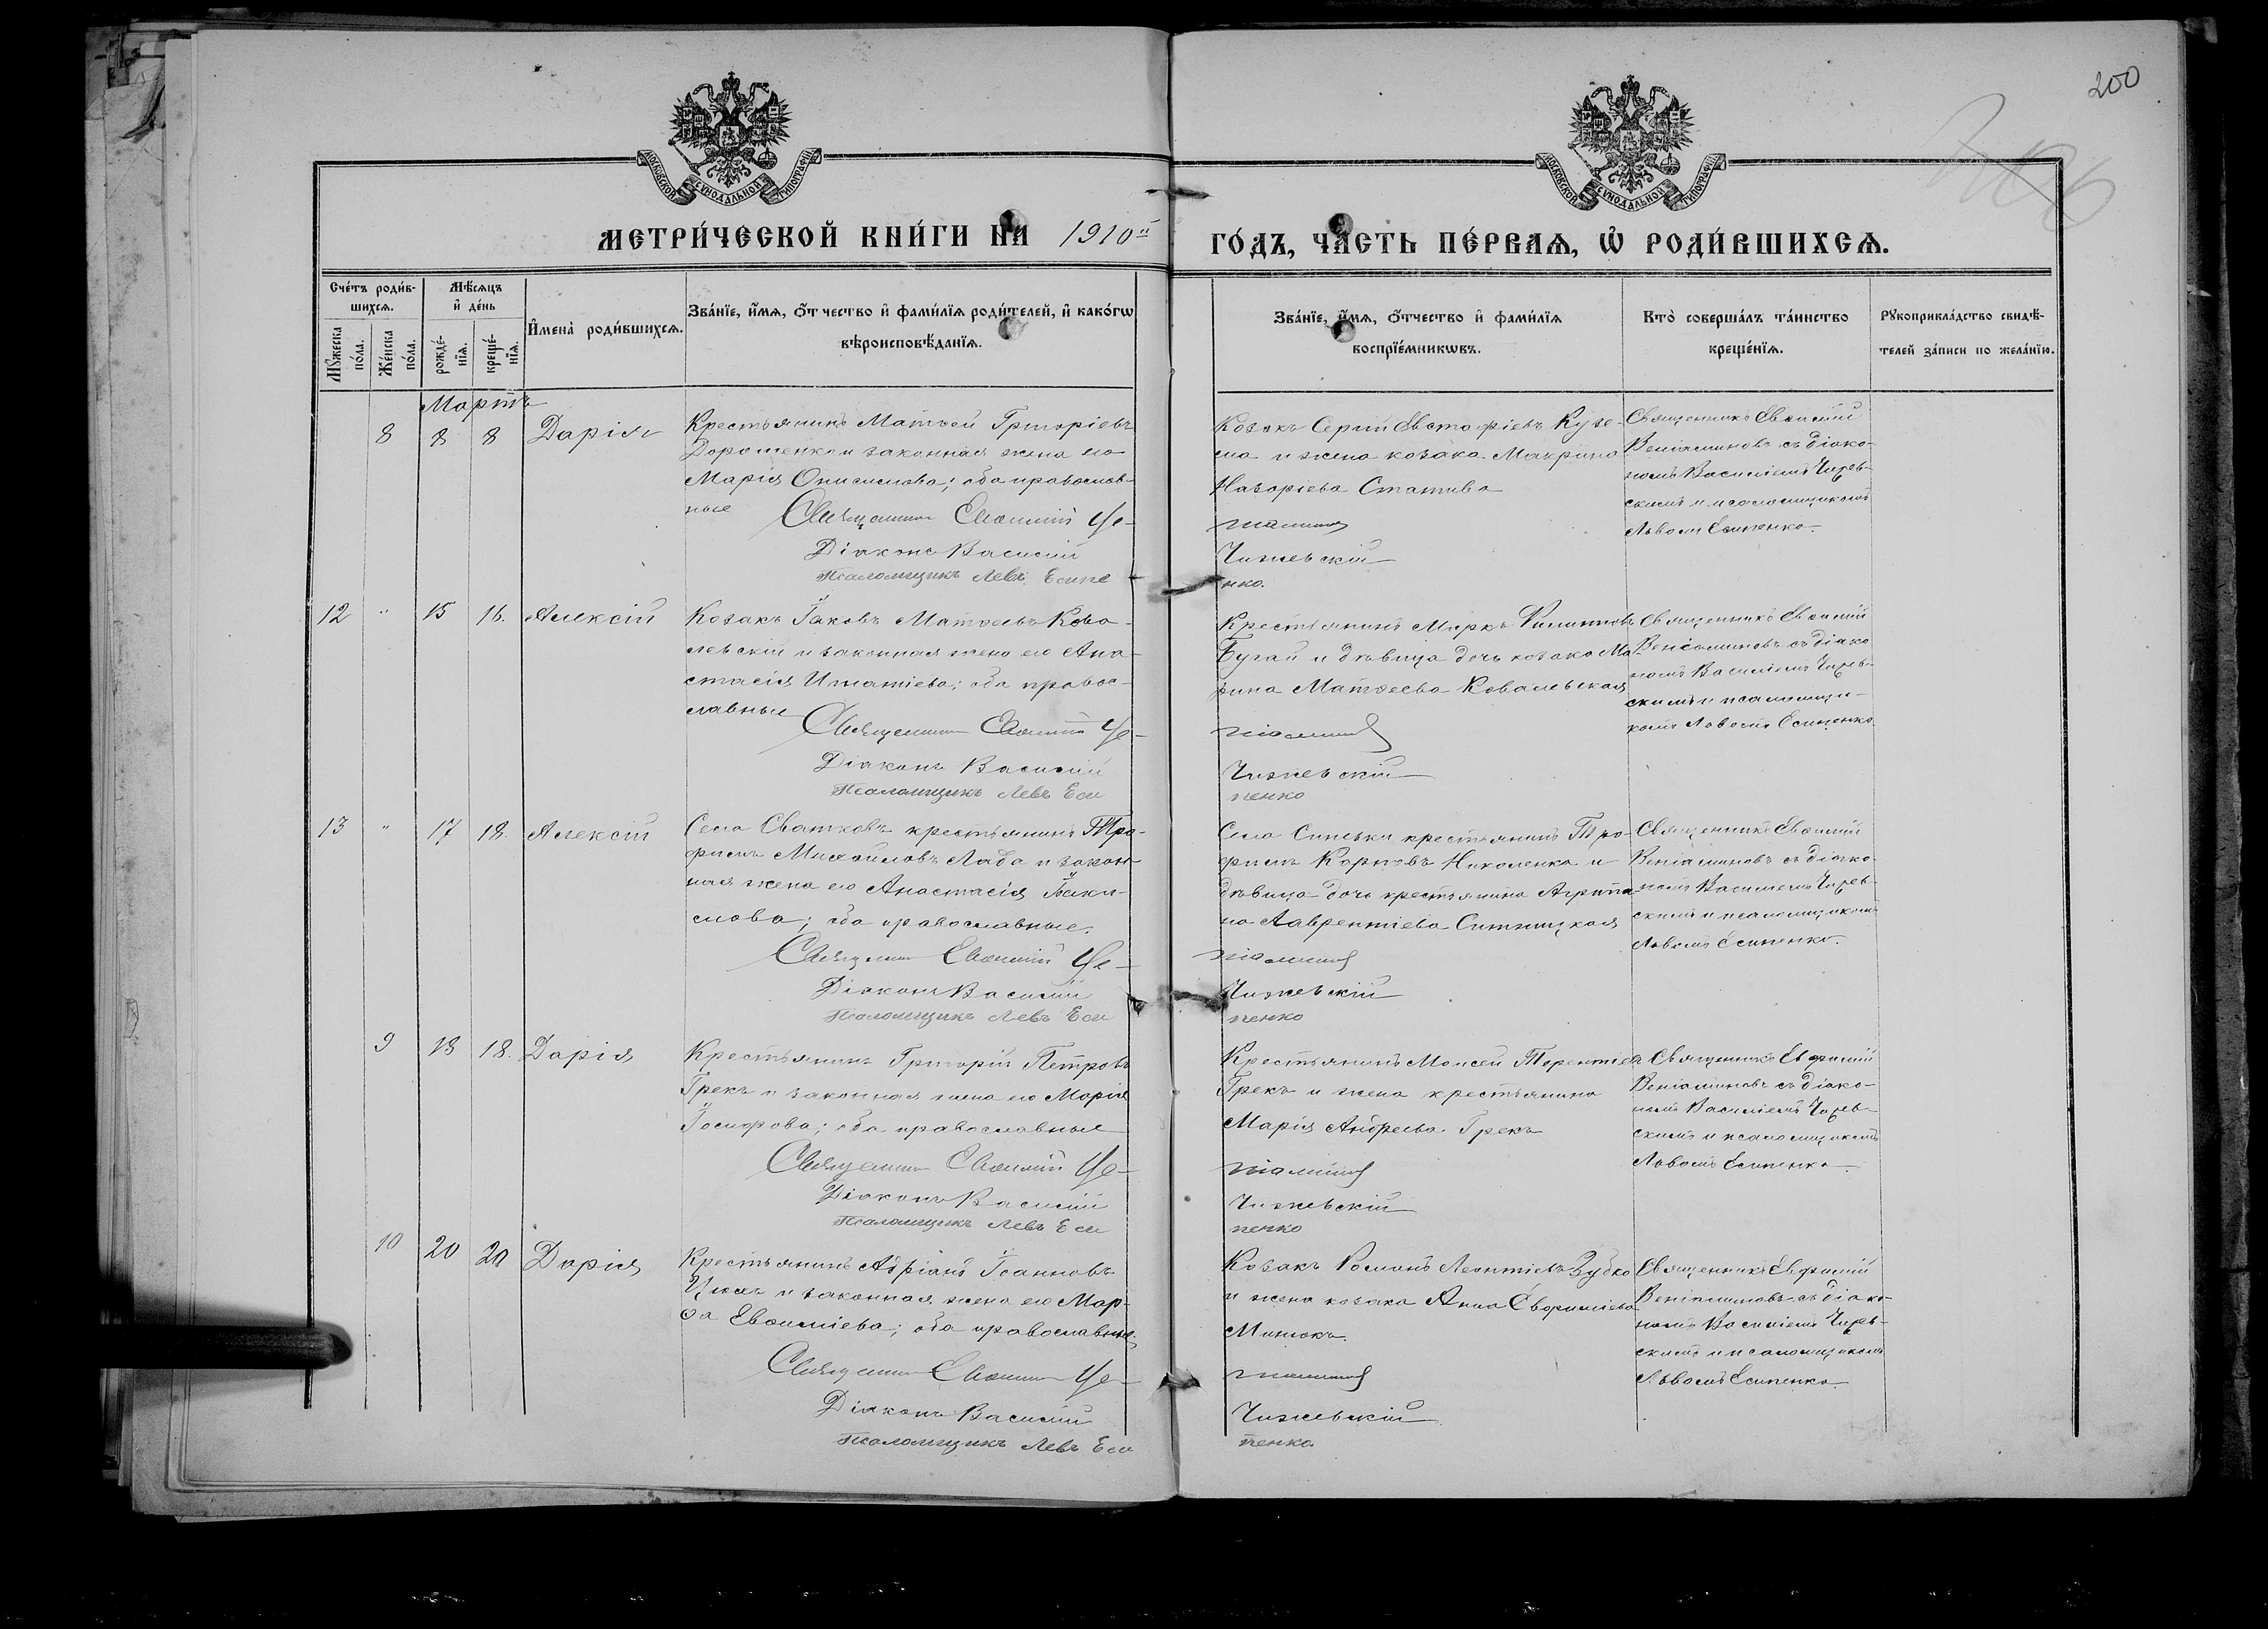 200
МОСКОВСКОЙ СѴНОДАЛЬНОЙ ТИПОГРАФІИ
МОСКОВСКОЙ СѴНОДАЛЬНОЙ ТИПОГРАФІИ
МЕТРИ́ЧЕСКОЙ КНИ́ГИ НА 1910й ГО́ДЪ, ЧА́СТЬ ПЕ́РВАѦ, Ѡ РОДИ́ВШИХСѦ.
Сче́тъ роди́в-
шихсѧ.
Мꙋ́жеска
по́ла.
Же́нска
по́ла.
Мѣ́сѧцъ
и҆ де́нь
рожде́-
нїѧ.
креще́-
нїѧ.
И҆мена̀ роди́вшихсѧ.
Зва́нїе, и҆́мѧ, ѻ҆́тчество и҆ фами́лїѧ роди́телей, и҆ како́гѡ
вѣроисповѣ́данїѧ.
Зва́нїе, и҆́мѧ, ѻ҆́тчество и҆ фами́лїѧ
воспрїе́мникѡвъ.
Кто̀ соверша́лъ та́инство
креще́нїѧ.
Рꙋкоприкла́дство свидѣ́-
телей за́писи по жела́нїю.
Мартъ
8 8 8 Дарія
Крестьянинъ Матѳей Григоріевъ
Дорошенко и законная жена его
Марія Онисимова; оба православ-
ные
Священникъ Евѳимій
Діаконъ Василій Чижевскій
Псаломщикъ Левъ Есипенко.
Козакъ Сергій Евстафіевъ Кузе-
ма и жена козака Макрина
Назаріева Статива
Священникъ Евѳимій
Веніаминовъ съ діако-
номъ Василіемъ Чижев-
скимъ и псаломщикомъ
Львомъ Есипенко.
12 " 15 16. Алексій
Козакъ Іаковъ Матѳеевъ Кова-
левскій и законная жена его Ана-
стасія Игнатіева; оба право-
славные
Священникъ Евѳимій
Діаконъ Василій Чижевскій
Псаломщикъ Левъ Есипенко
Крестьянинъ Маркъ Филипповъ
Бугай и дѣвица дочь козака Ма-
рина Матѳеева Ковалевская
Священникъ Евѳимій
Веніаминовъ съ діако
номъ Василіемъ Чижев-
скимъ и псаломщи-
комъ Львомъ Есипенко.
13 " 17 18. Алексій
Села Сватковъ крестьянинъ Тро-
фимъ Михаиловъ Лаба и закон-
ная жена его Анастасія
оба православные.
Священникъ Евѳимій
Діаконъ Василій Чижевскій
Псаломщикъ Левъ Есипенко
Села Синевки крестьянинъ Тро-
фимъ Карповъ Николенко и
дѣвица дочь крестьянина Агрипи-
на Лаврентіева Ситницкая
Священникъ Евѳимій
Веніаминовъ съ діако-
номъ Василіемъ Чижев-
скимъ и псаломщикомъ
Львомъ Есипенко.
9 18 18. Дарія
Крестьянинъ Григорій Петровъ
Грекъ и законная жена его Марія
Іосифова; оба православные
Священникъ Евѳимій
Діаконъ Василій Чижевскій
Псаломщикъ Левъ Есипенко
Крестьянинъ Моисей Терентіевъ
Грекъ и жена крестьянина
Марія Андреева Грекъ
Священникъ Евфимій
Веніаминовъ съ діако-
номъ Василіемъ Чижев-
скимъ и псаломщикомъ
Львомъ Есипенко.
10 20 20 Дарія
Крестьянинъ Адріанъ Іоанновъ
и законная жена его Мар-
ѳа Евѳиміева; оба православные.
Священникъ Евѳимій
Діаконъ Василій Чижевскій
Псаломщикъ Левъ Есипенко.
Козакъ Романъ Леонтіевъ Зубко
и жена козака Анна Евфиміева
Священникъ Евфимій
Веніаминовъ съ діако-
номъ Василіемъ Чижев-
скимъ и псаломщикомъ
Львомъ Есипенко.